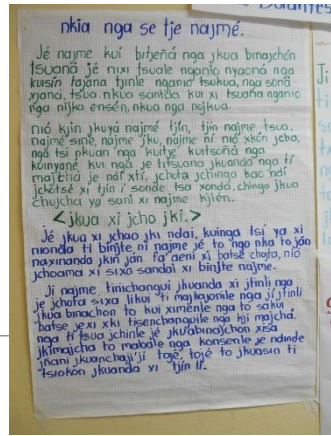 nkia nga se tje najmé.
Jé najme kui bitjeñá nga jkua binajchón
tsuaná jé nixi tsuale nganio nyaoná nga
kuisín tajána tjinle nganio tsukua, nga soná
xjaná, tsua nkua santda kui xi tsuaña nganio
nga nijka ensén, nkua nga nojkua.
nió kjin jkuyá najmé tjín, tjin najme tsua,
najme sine, najme jku, najme ni nió xkón jcho,
ngá tsi pkuan nga kutje kuitsoña nga
kuinyane kui nga je titsuana jkuanda nga ti
majchá je ndí xtí, jchota jchinga kao ndí
jchotsé xi tjin i sonde tsa xonda, chinga jkua
chujcha ya sani xi najme kjién.
<jkua xi jcho jki.>
Jé jkua xi jchao jki ndai, kuinga tsi ya xi
nionda ti binjte ni najme jé to ngo nka to ján
naxinanda jkin ján fa'aeni xi batse chojta, nió
jchoama xi sixa sandai xi binjte najme.
Ji najme tinichangui jkuanda xi jtinli nga
je jchota sixa likui ti majkajonile nga jí jtinli
jkua binachon to kui ximénle nga to sakui
batse jexi xki tisenchanguile nga kji majchá.
nga ti tsua jchinle je jkuabinajchon xisa
jkimajcha to mabale nga konsenle je ndinde
jñani jkuanchaji'ji tojé, tojé to jkuasin ti
tsiokon jkuanda xi tjin li.
Ji